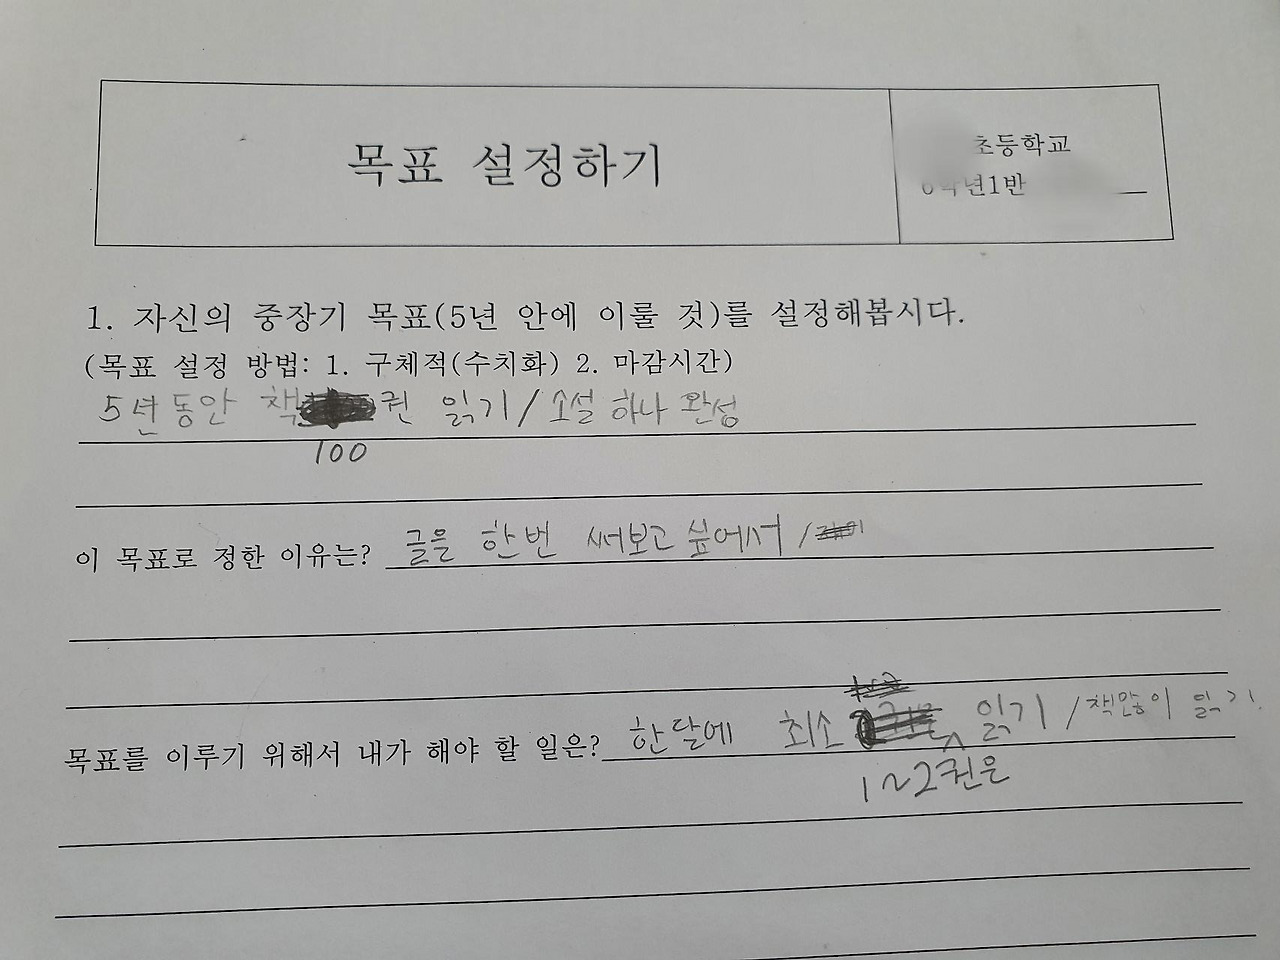 목표 설정하기
초등학교
6학년1반
1. 자신의 중장기 목표(5년 안에 이룰 것)를 설정해봅시다.
(목표 설정 방법: 1. 구체적(수치화) 2. 마감시간)
5년동안 책 권 읽기/소설 하나 완성
100
이 목표로 정한 이유는? 글은 한번 써보고 싶어서 /
목표를 이루기 위해서 내가 해야 할 일은? 한달에 최소 읽기 /책많이 읽기
1~2권은